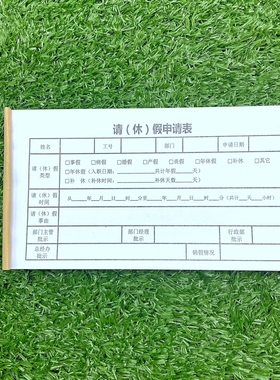 请（休）假申请表
姓名 工号 部门 申请日期
请（休）假类型 □事假 □病假 □婚假 □产假 □丧假 □年休假 □补休 □其它
□年休假（入职日期：____共计年假____天）
□补 休（补休时间：____补休天数____天）
请（休）假时间 从___年___月___日___时___分至___年___月___日___时___分（共计___天___小时）
请（休）假事由
部门主管批示 部门经理批示 行政部批示
总经办批示 销假情况